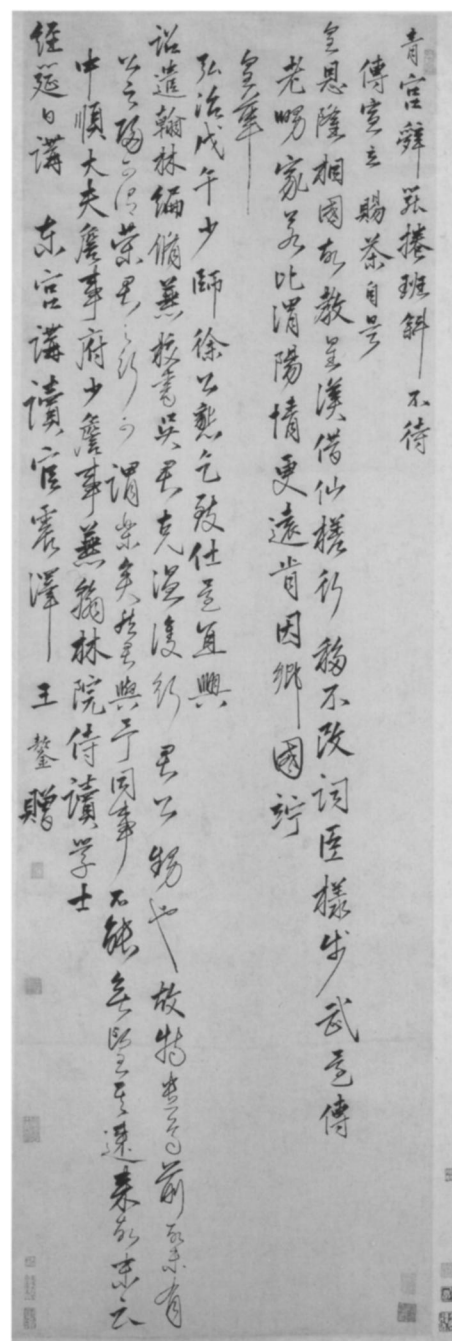 青宮辭罷捲班斜不待
傳宣立賜茶自是
皇恩隆相國故教星漢借仙槎行移不改詞臣樣步武還傳
老舅家若比渭陽情更遠肯因鄉國訝
皇華
弘治戊午少師徐公懇乞致仕還宜興
詔遣翰林編脩兼校書吳君克温護行君公甥也故特遣焉前所未有
公之歸可謂榮君之行可謂樂矣然君與予同事不能無望其速來故末云
中順大夫詹事府少詹事兼翰林院侍讀學士
經筵日講東宮講讀官震澤王鏊贈